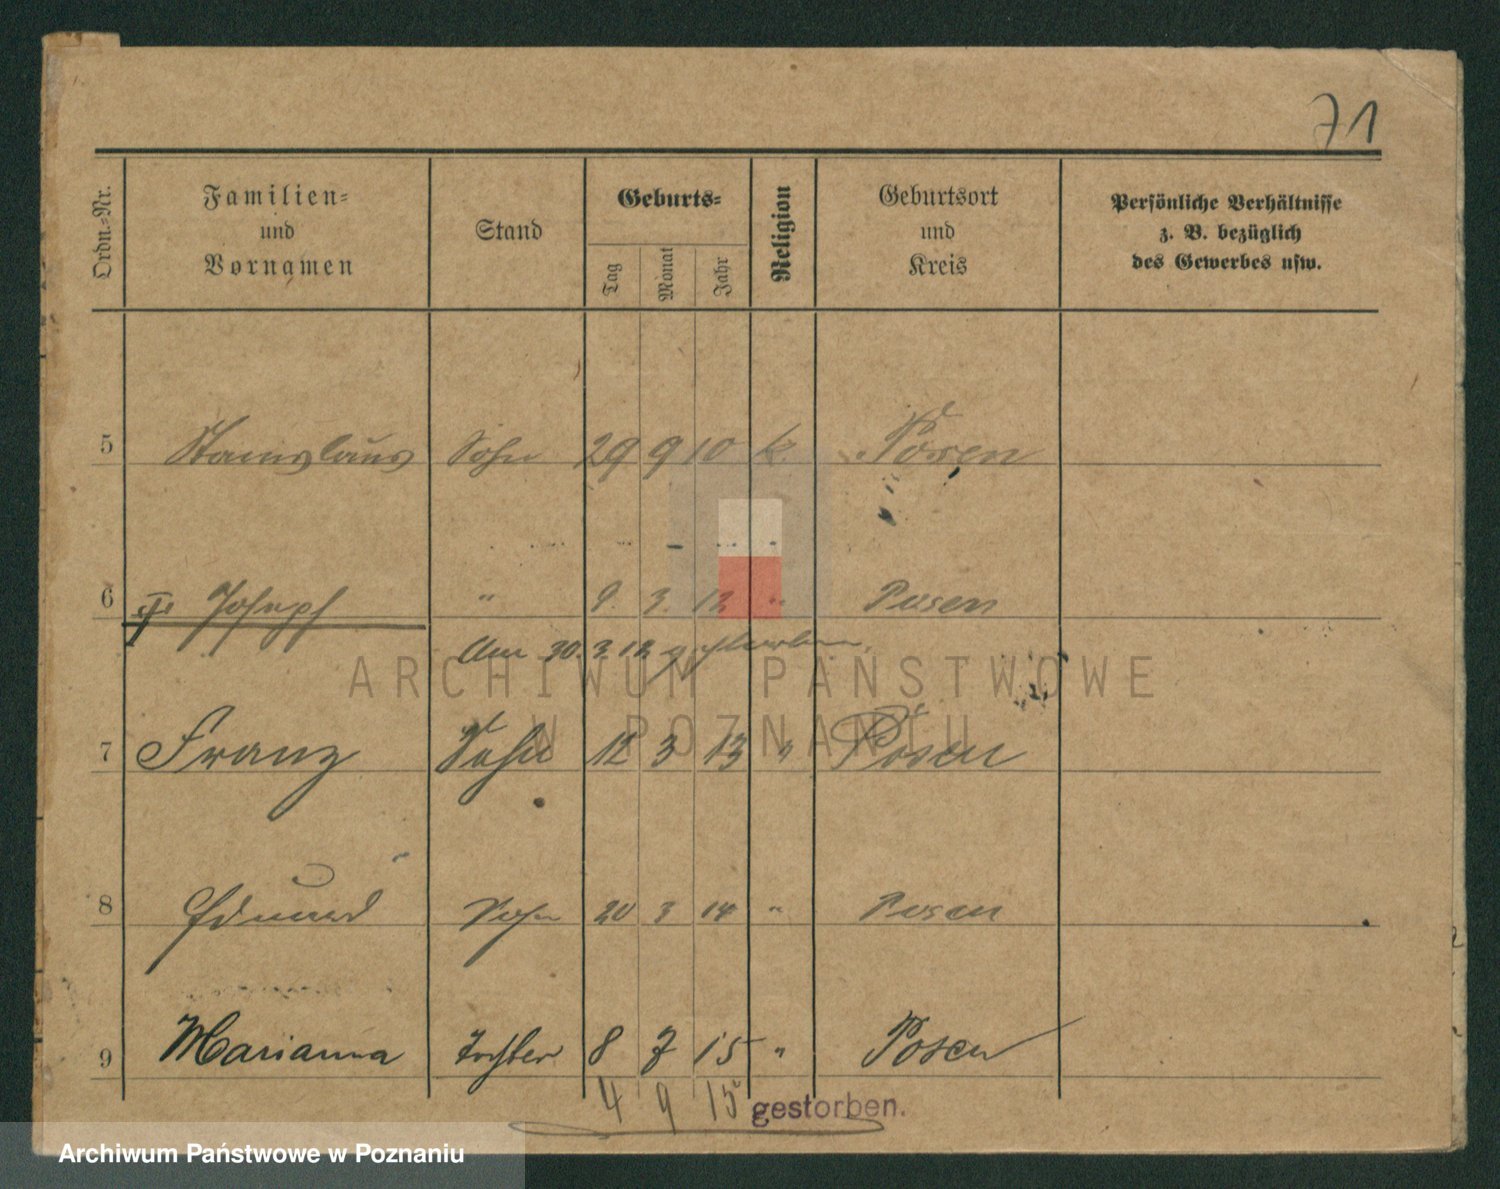 71
Ordn.-Nr. Familien- und Vornamen Stand Geburts- Tag Monat Jahr Religion Geburtsort und Kreis Persönliche Verhältnisse z. B. bezüglich des Gewerbes usw.
5 Stanislaus Sohn 29 9 10 k. Posen
6 Joseph " 9. 3. 12 " Posen
Am 30. 3. 12 gestorben.
7 Franz Sohn 12 3 13 " Posen
8 Edmund Sohn 20 3 14 " Posen
9 Marianna Tochter 8 7 15 " Posen
4 9 15 gestorben.
ARCHIWUM PAŃSTWOWE
W POZNANIU
Archiwum Państwowe w Poznaniu